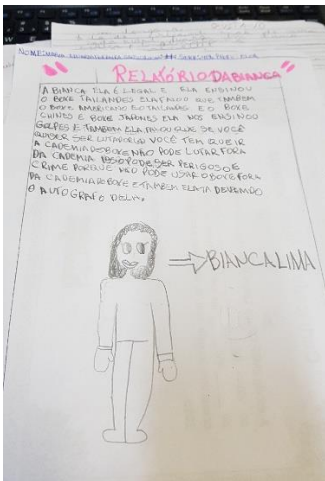 NOME: MARIA
"RELATÓRIO DA BIANCA"
A BIANCA ELA É LEGAL E ELA ENSINOU
O BOXE TAILANDES ELA FALOU QUE TAMBEM
O BOXE AMERICANO E O TAILANDES E O BOXE
CHINES E BOXE JAPONES ELA NOS ENSINOU
GOLPES E TAMBEM ELA FALOU QUE SE VOCÊ
QUISER SER LUTADOR VOCÊ TEM QUE IR
A CADEMIA DE BOXE NÃO PODE LUTAR FORA
DA CADEMIA ISSO PODE SER PERIGOSO E
CRIME PORQUE NÃO PODE USAR O BOXE FORA
DA CADEMIA DE BOXE E TAMBEM ELA TA DEVENDO
O AUTOGRAFO DELA.
BIANCA LIMA